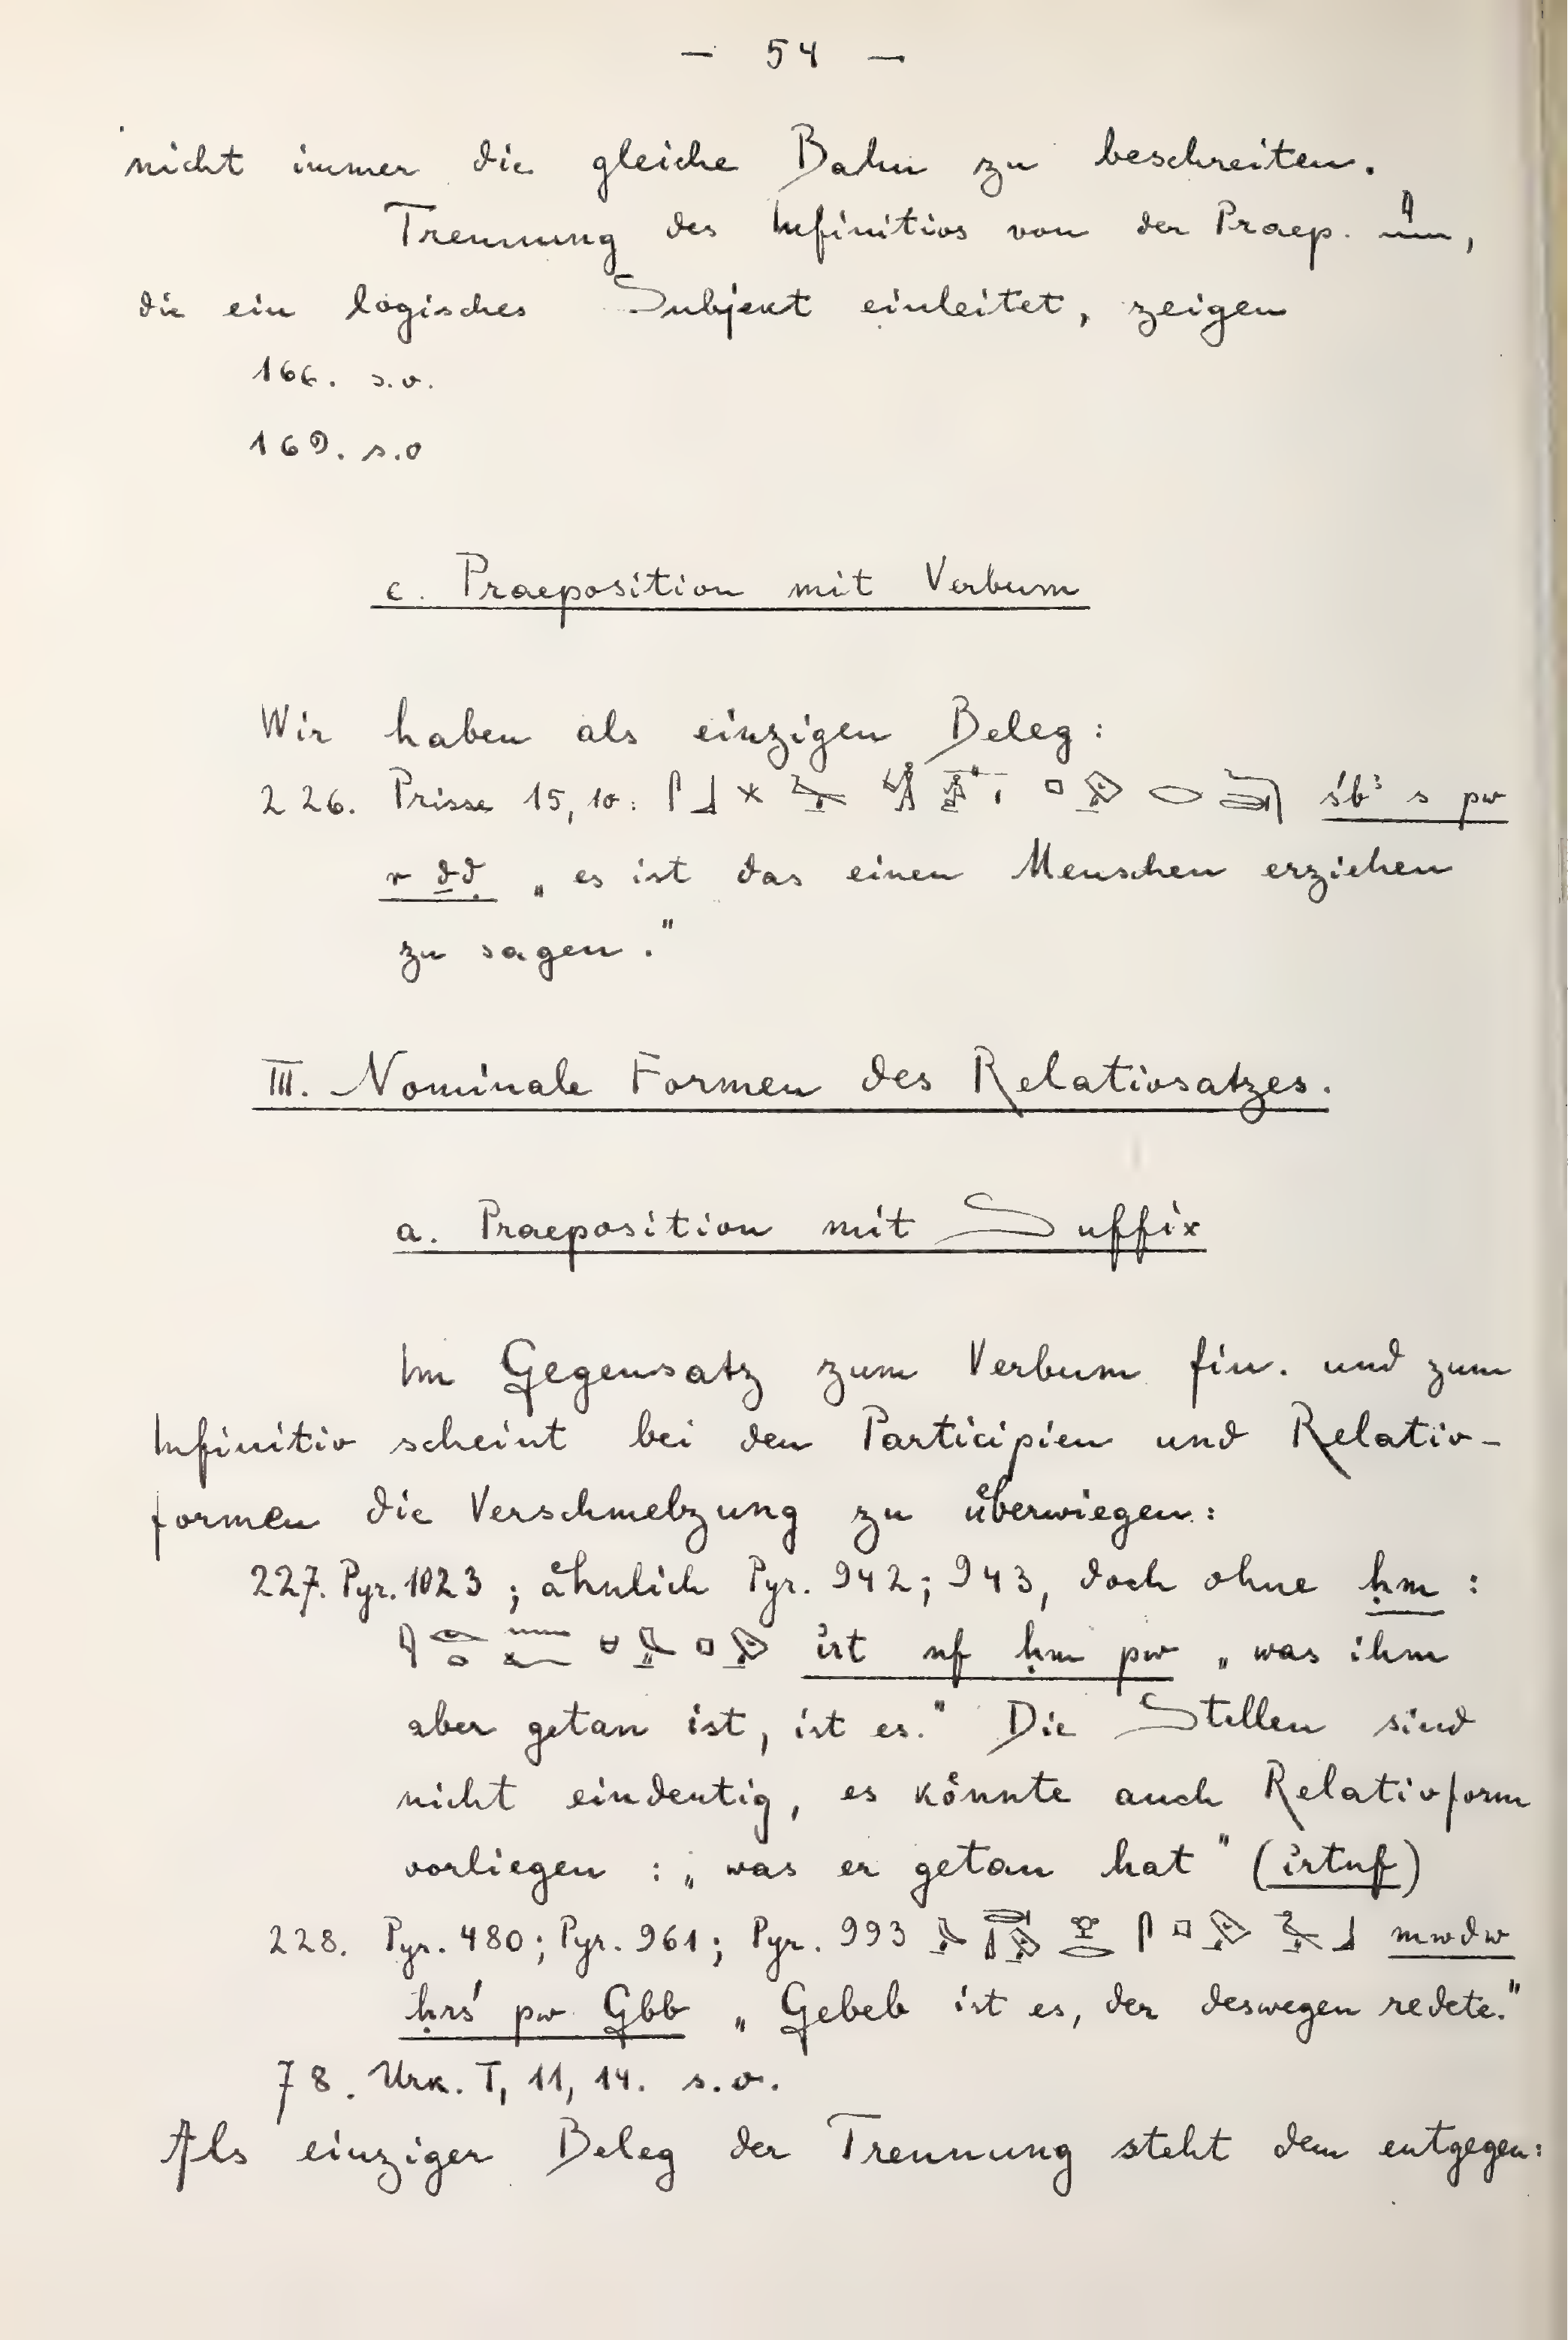 — 54 —
nicht immer die gleiche Bahn zu beschreiten.
Trennung des Infinitivs von der Praep. 𓇋𓈖,
die ein logisches Subjekt einleitet, zeigen
166. s.o.
169. s.o
c. Praeposition mit Verbum
Wir haben als einzigen Beleg:
226. Prisse 15,10: śbꜣ s pw
r ḏd „es ist das einen Menschen erziehen
zu sagen."
III. Nominale Formen des Relativsatzes.
a. Praeposition mit Suffix
Im Gegensatz zum Verbum fin. und zum
Infinitiv scheint bei den Participien und Relativ-
formen die Verschmelzung zu überwiegen:
227. Pyr. 1023; ähnlich Pyr. 942; 943, doch ohne ḥm:
𓇋𓁹𓏏𓈖𓆑 ı͗rt nf ḥm pw „was ihm
aber getan ist, ist es." Die Stellen sind
nicht eindeutig, es könnte auch Relativform
vorliegen: „was er getan hat" (ı͗rtnf)
228. Pyr. 480; Pyr. 961; Pyr. 993 mwdw
ḥrś pw Gbb „Gebeb ist es, der deswegen redete."
78. Urk. I, 11, 14. s.o.
Als einziger Beleg der Trennung steht dem entgegen: